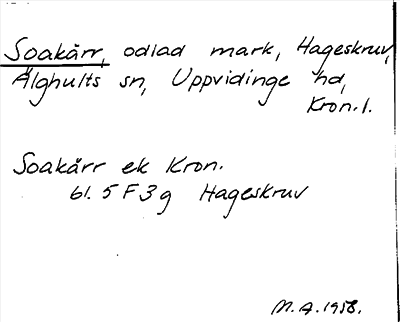 Soakärr, odlad mark, Hageskruv,
Älghults sn, Uppvidinge hd,
Kron. l.
Soakärr ek Kron.
bl. 5 F 3 g Hageskruv
M. A. 1958.